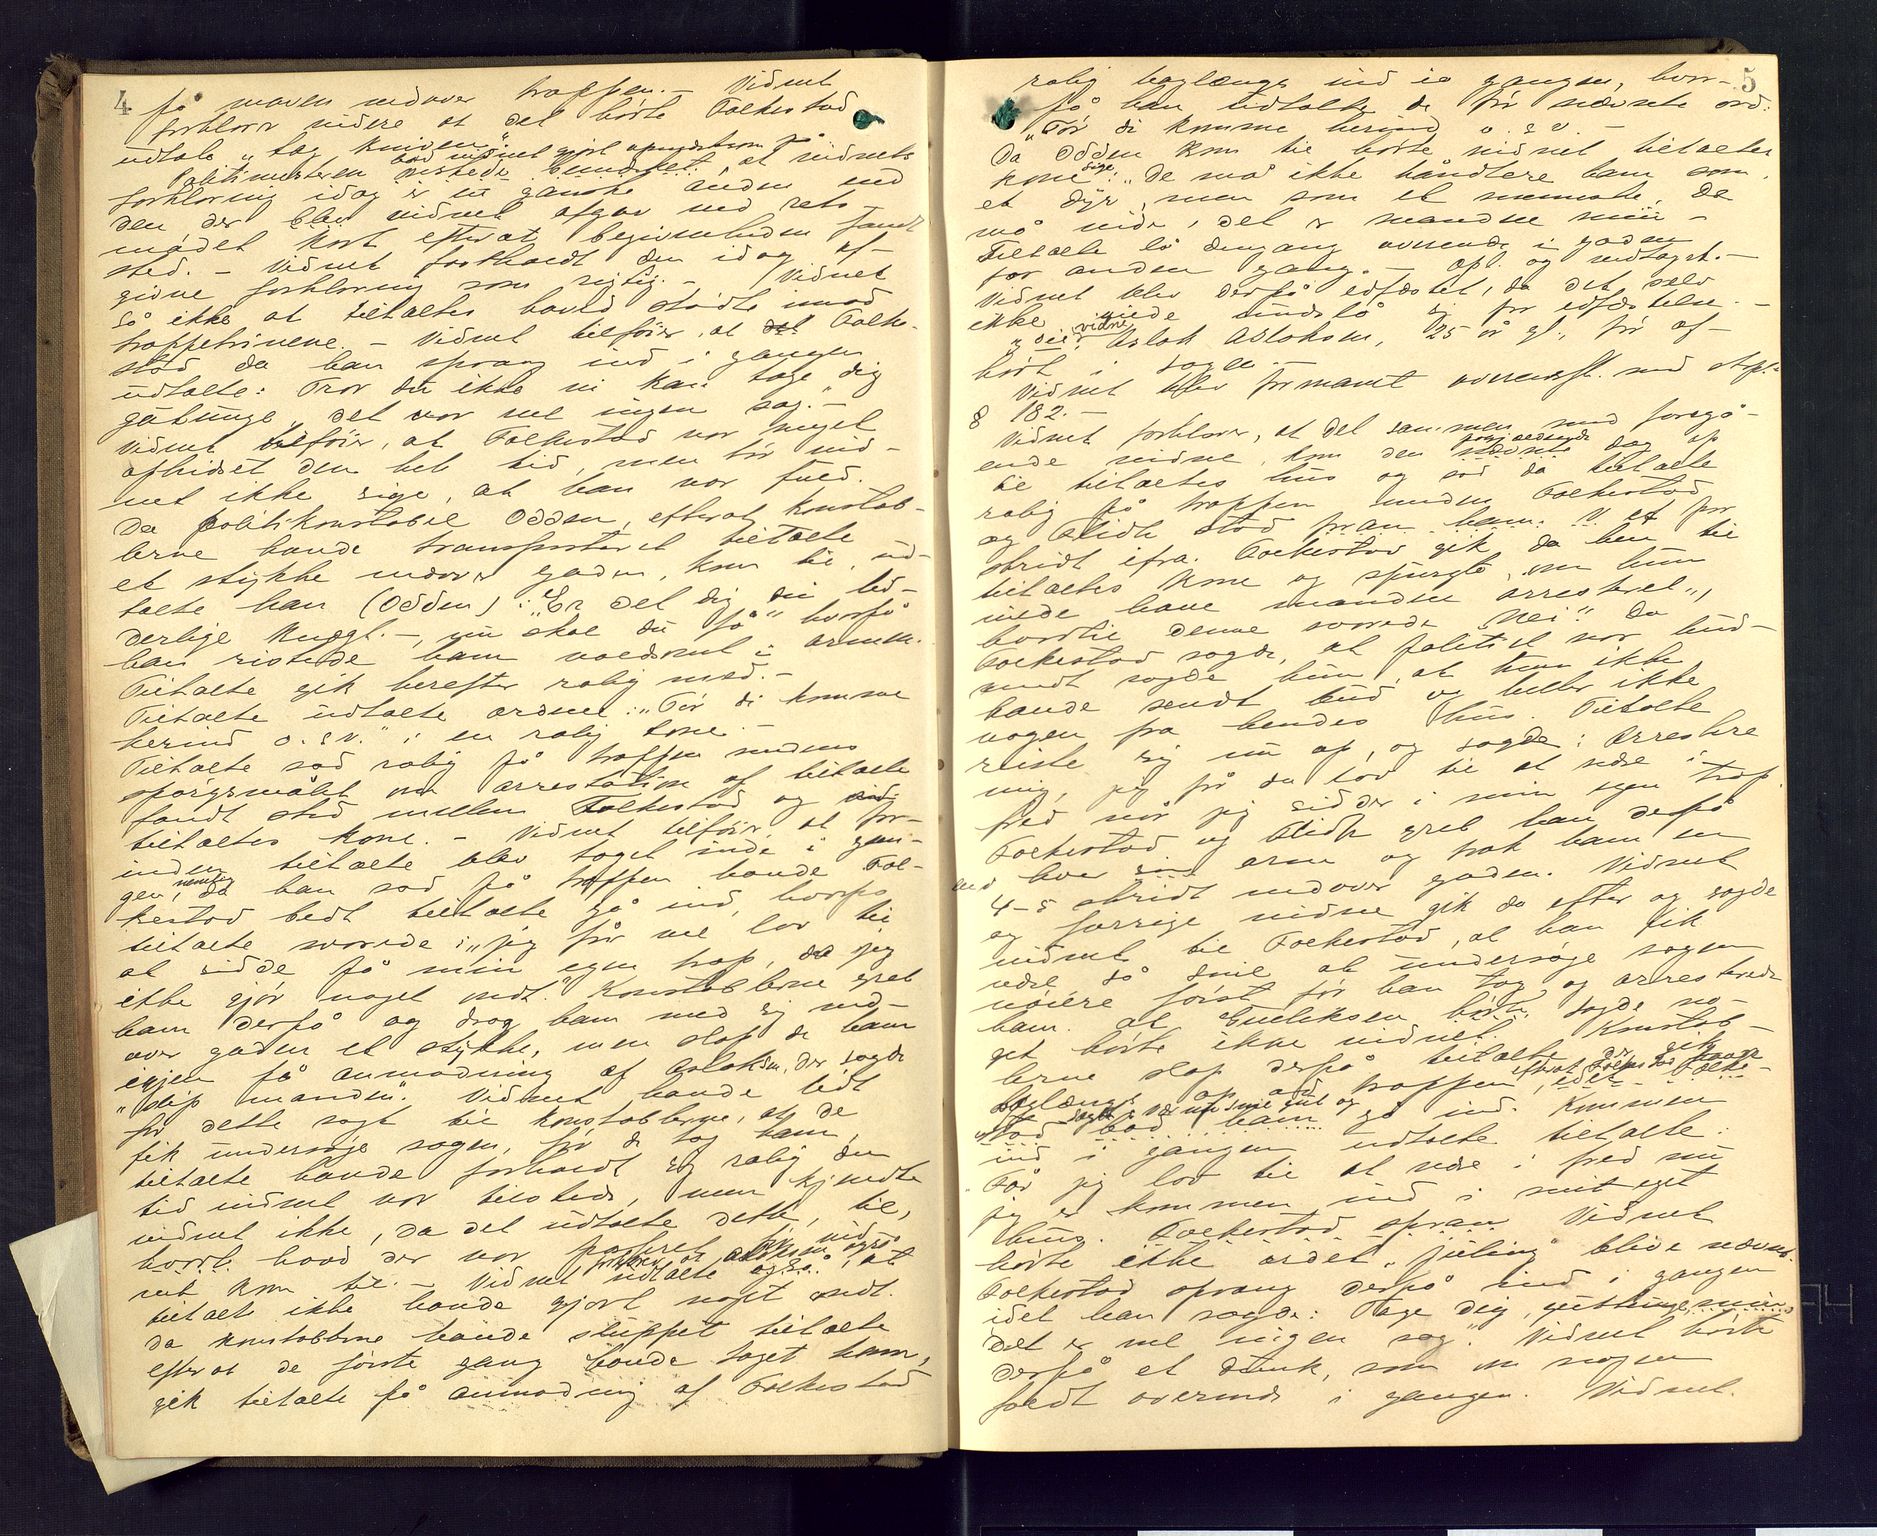 4
på maven nedover trappen. — Vidnet
forklarer videre at det hørte Folkestad
udtale "tag kniven".
Politimesteren bad vidnet gjort opmærksom på
bemerket, at vidnets
forklaring idag er en ganske anden end
den der blev vidnet afgav ved rets-
mødet kort efterat begivenheden fandt
sted. — Vidnet fastholdt den idag af-
givne forklaring som rigtig. — Vidnet
så ikke at tiltaltes hoved stødte imod
trappetrinene. — Vidnet tilføier, at Folke-
stad da han sprang ind i gangen
udtalte: Tror du ikke vi kan tage dig
gatunge, det var vel ingen sag. —
Vidnet tilføier, at Folkestad var meget
ophidset den hele tid, men tør vid-
net ikke sige, at han var fuld.
Da politikonstabel Odden, efterat konstab-
lerne havde transporteret tiltalte
et stykke nedover gaden, kom til, ud-
talte han (Odden): "Er det dig din lid-
derlige knægt. —, nu skal du få" hvorpå
han ristede ham voldsomt i armen.
Tiltalte gik herefter rolig med. —
Tiltalte udtalte ordene: "Tør di komme
herind o. s. v." i en rolig tone. —
Tiltalte sad rolig på trappen medens
spørgsmålet om arrestation af tiltalte
fandt sted mellem Folkestad og
tiltaltes kone. — Vidnet tilføier, at for-
inden tiltalte blev taget inde i gan-
gen, nemlig da han sad på trappen havde Fol-
kestad bedt tiltalte gå ind, hvorpå
tiltalte svarede: "jeg får vel lov til
at sidde på min egen trap, da jeg
ikke gjør noget ondt." Konstablerne greb
ham derpå og drog ham med sig ned-
over gaden et stykke, men slap de ham
igjen på anmodning af Aslaksen, der sagde
"slip manden". Vidnet havde lidt
før dette sagt til konstablerne, at de
fik undersøge sagen, før de tog ham,
tiltalte havde forholdt sig rolig den
tid vidnet var tilstede, men kjendte
vidnet ikke, da det udtalte dette, til,
hvad der var passeret før vid-
net kom til. — Vidnet udtalte også, at
tiltalt ikke havde gjort noget ondt.
Da konstablerne havde sluppet tiltalte
efterat de første gang havde taget ham,
gik tiltalte på anmodning af Folkestad
5
rolig baglængs ind i gangen, hvor-
på han udtalte de før nævnte ord:
"Tør di komme herind o. s. v. —
Da Odden kom til hørte vidnet tiltaltes
kone sige: "De må ikke håndtere ham som
et dyr, men som et menneske, De
må vide, det er manden min —
Tiltalte lå dengang overende i gaden
for anden gang. — Opl. og vedtaget. —
Vidnet blev derpå edfæstet, da det selv
ikke vilde undslå sig for edfæstelse. —
2det vidne, Aslak Aslaksen, 25 år gl., før af-
hørt i sagen. —
Vidnet blev formanet overensst. med stpl.
§ 182. —
Vidnet forklarer, at det sammen med foregå-
ende vidne, kom den nævnte dag op
til tiltaltes hus og så da tiltalte
rolig på trappen medens Folkestad
og Flidh stod foran ham. et par
skridt ifra. Folkestad gik da hen til
tiltaltes kone og spurgte, om hun
vilde have manden arresteret",
hvortil denne svarede "Nei". Da
Folkestad sagde, at politiet var bud-
sendt sagde hun, at hun ikke
havde sendt bud og heller ikke
nogen fra hendes hus. Tiltalte
reiste sig nu op, og sagde: Arrestere
mig, jeg få da lov til at være i
fred når jeg sidder i min egen trap.
Folkestad og Flidh greb han derpå
ved hver sin arm og trak ham en
4-5 skridt nedover gaden. Vidnet
og forrige vidne gik da efter og sagde
vidnet til Folkestad, at han fik
være så snil at undersøge sagen
nøiere først før han tog og arresterede
ham. At Gulliksen hørte, sagde no-
get hørte ikke vidnet. Konstab-
lerne slap derpå tiltalte, der gik
baglængs op ad trappen, efterat Folkestad havde
sagt: vær nu snil gut og gå ind. Kommen
ind i gangen udtalte tiltalte:
Får jeg lov til at være i fred nu
jeg er kommen ind i mit eget
hus. Vidnet
hørte ikke ordet "juling" blive nævnt.
Folkestad sprang derpå ind i gangen
idet han sagde: Tage dig, guttunge min,
det er vel ingen sag". Vidnet hørte
derpå et dunk, som om nogen
faldt overende i gangen. Vidnet